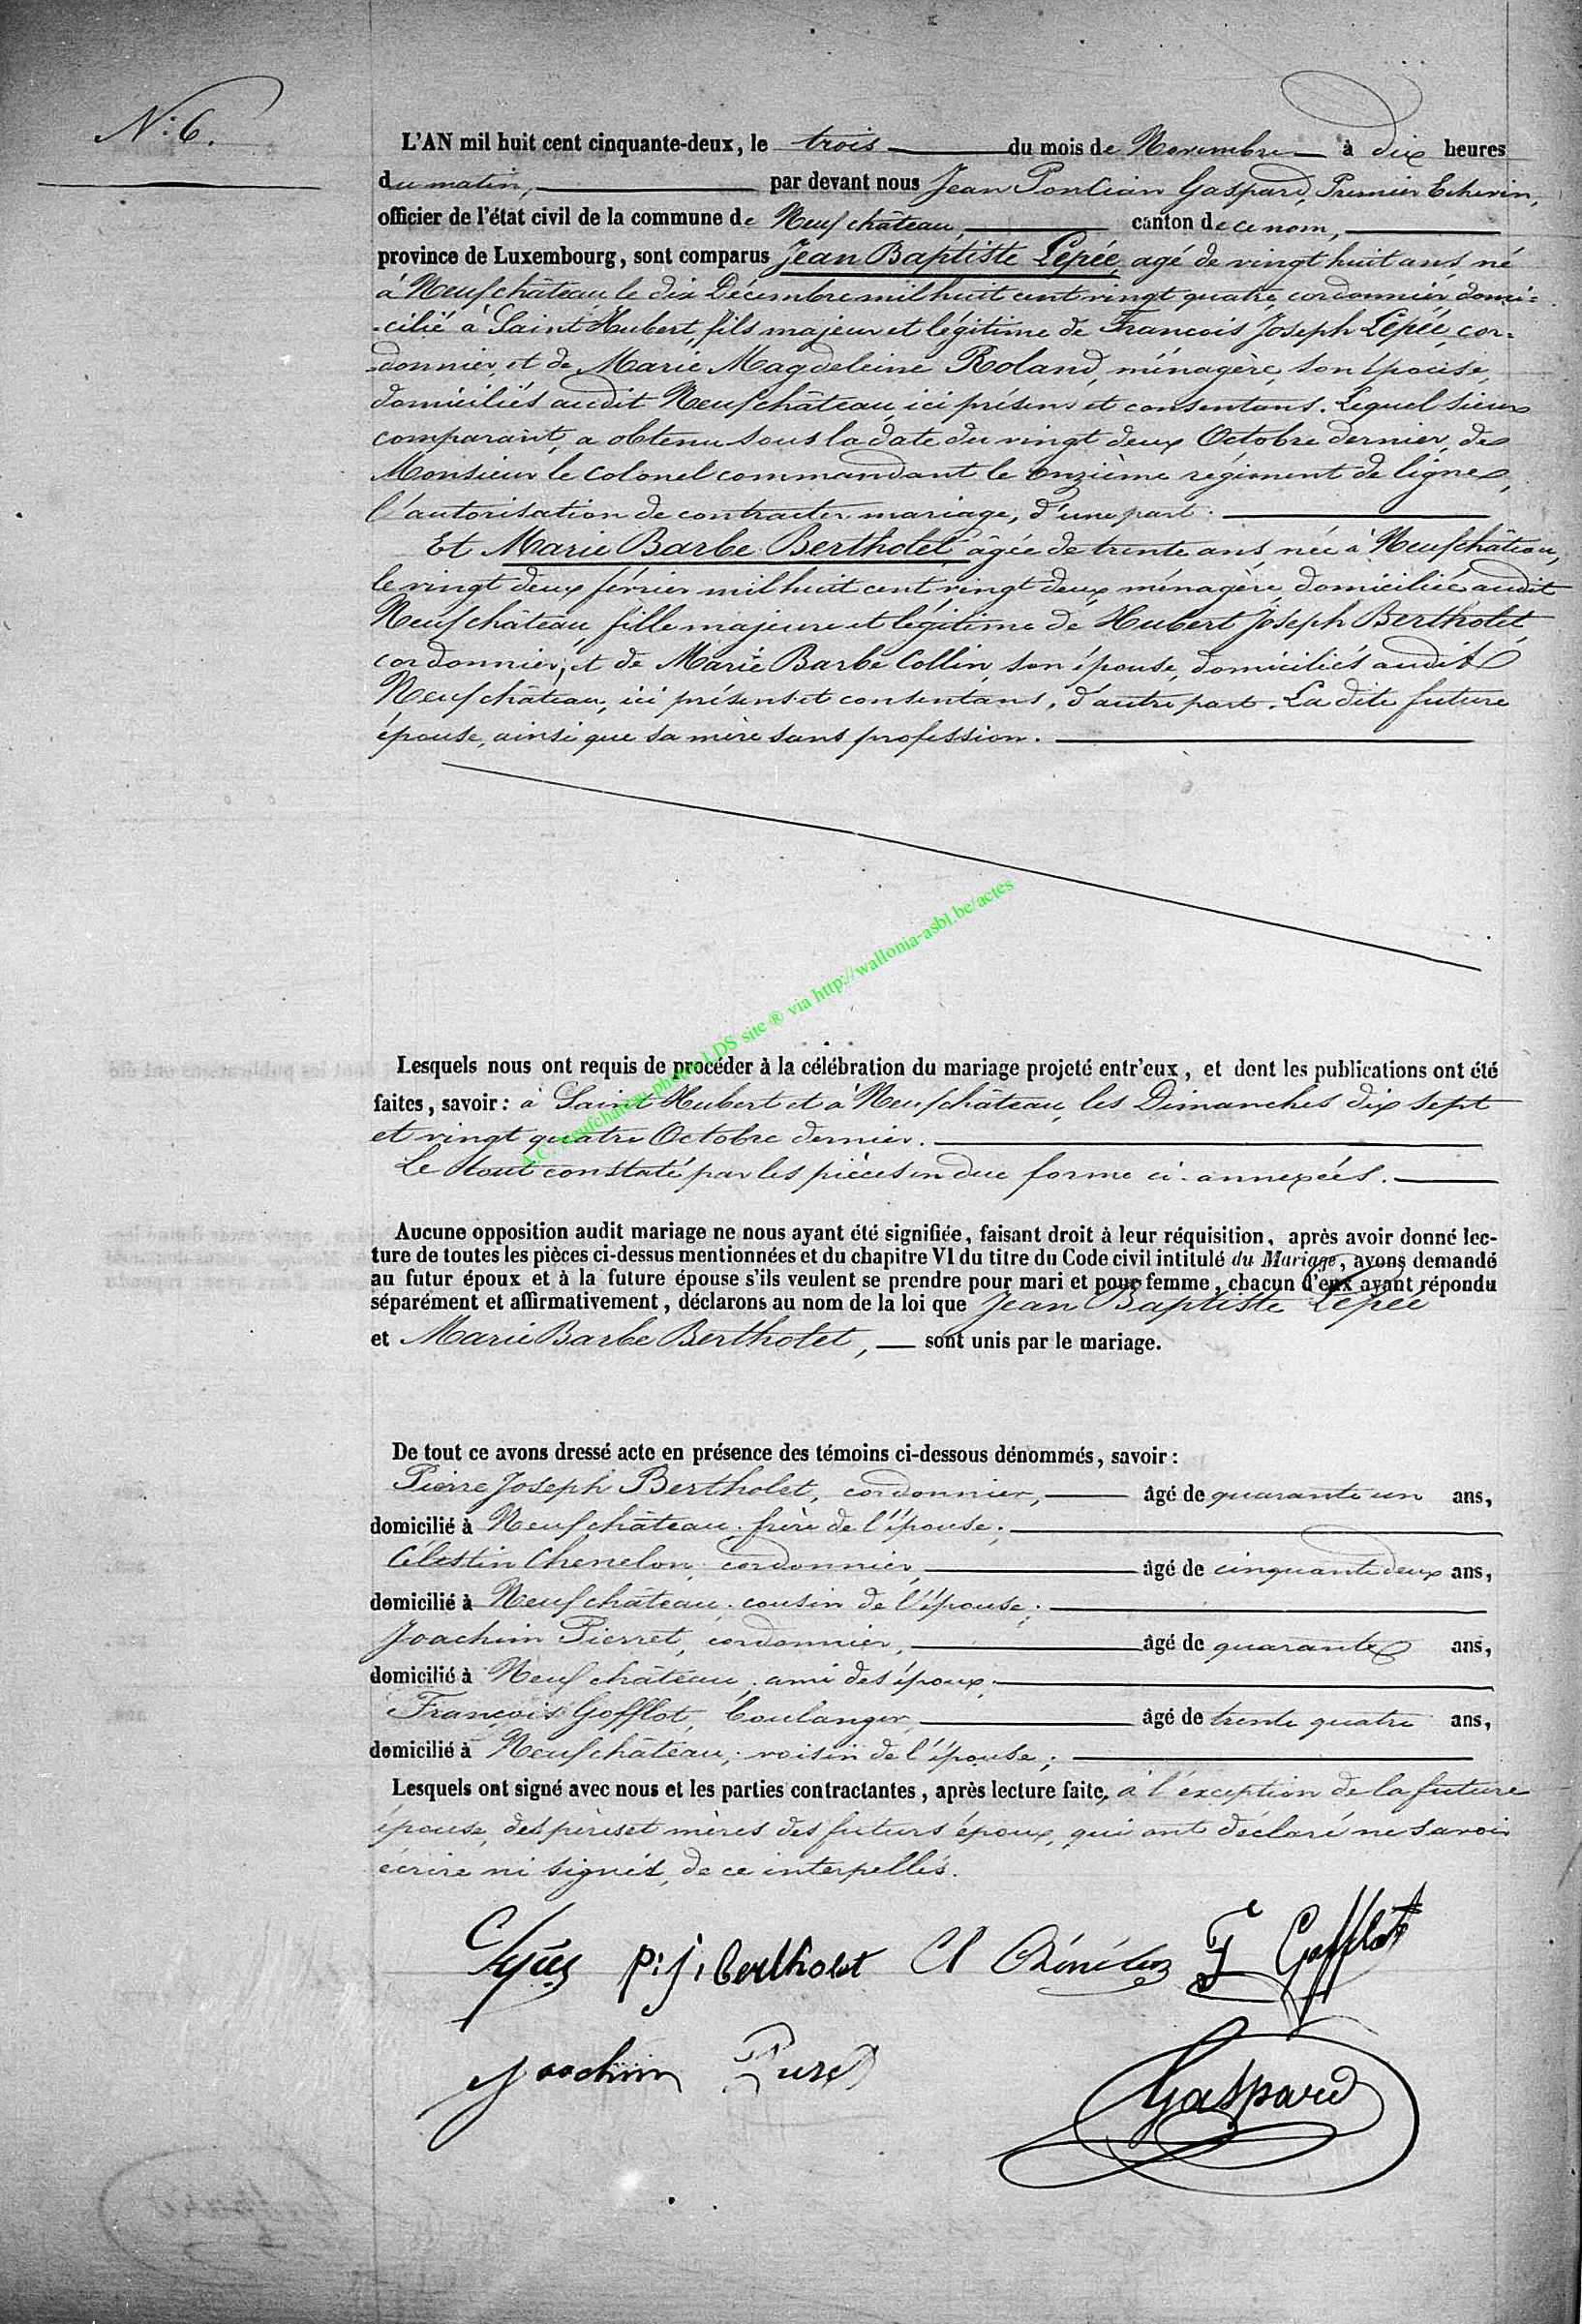 N.º 6.
L'AN mil huit cent cinquante-deux, le trois du mois de Novembre à dix heures
du matin, par devant nous Jean Pontian Gaspard, Premier Echevin,
officier de l'état civil de la commune de Neufchâteau, canton de ce nom,
province de Luxembourg, sont comparus Jean Baptiste Lépée, agé de vingt huit ans, né
à Neufchâteau le dix Décembre mil huit cent vingt quatre, cordonnier, domi=
=cilié à Saint Hubert, fils majeur et légitime de Francois Joseph Lépée, cor=
=donnier, et de Marie Magdeleine Roland, ménagère, son épouse,
domiciliés audit Neufchâteau, ici présens et consentans. Lequel sieur
comparant, a obtenu sous la date du vingt deux Octobre dernier, de
Monsieur le Colonel commandant le onzième régiment de ligne,
l'autorisation de contracter mariage, d'une part.
Et Marie Barbe Bertholet âgée de trente ans, née à Neufchâteau,
le vingt deux février mil huit cent vingt deux, ménagère, domiciliée audit
Neufchâteau, fille majeure et légitime de Hubert Joseph Bertholet
cordonnier, et de Marie Barbe Collin, son épouse, domiciliés audit
Neufchâteau, ici présens et consentans, d'autre part. La dite future
épouse, ainsi que sa mère sans profession.
Lesquels nous ont requis de procéder à la célébration du mariage projeté entr'eux, et dont les publications ont été
faites, savoir: à Saint Hubert et à Neufchâteau, les Dimanches dix sept
et vingt quatre Octobre dernier.
Le tout constaté par les pièces en due forme ci-annexées.
Aucune opposition audit mariage ne nous ayant été signifiée, faisant droit à leur réquisition, après avoir donné lec-
ture de toutes les pièces ci-dessus mentionnées et du chapitre VI du titre du Code civil intitulé du Mariage, avons demandé
au futur époux et à la future épouse s'ils veulent se prendre pour mari et pour femme, chacun d'eux ayant répondu
séparément et affirmativement, déclarons au nom de la loi que Jean Baptiste Lépée
et Marie Barbe Bertholet, sont unis par le mariage.
De tout ce avons dressé acte en présence des témoins ci-dessous dénommés, savoir:
Pierre Joseph Bertholet, cordonnier, âgé de quarante un ans,
domicilié à Neufchâteau, frère de l'épouse;
Célestin Chenelon, cordonnier, âgé de cinquante deux ans,
domicilié à Neufchâteau, cousin de l'épouse;
Joachim Pierret, cordonnier, âgé de quarante ans,
domicilié à Neufchâteau, ami des époux;
François Gofflot, boulanger, âgé de trente quatre ans,
domicilié à Neufchâteau, voisin de l'épouse;
Lesquels ont signé avec nous et les parties contractantes, après lecture faite, à l'exception de la future
épouse, des pères et mères des futurs époux, qui ont déclaré ne savoir
écrire ni signer, de ce interpellés.
p: j: bertholet Cl Chénélon F Gofflot
joachim
Gaspard
A.C. Neufchateau photos LDS site ® via http://wallonia-asbl.be/actes